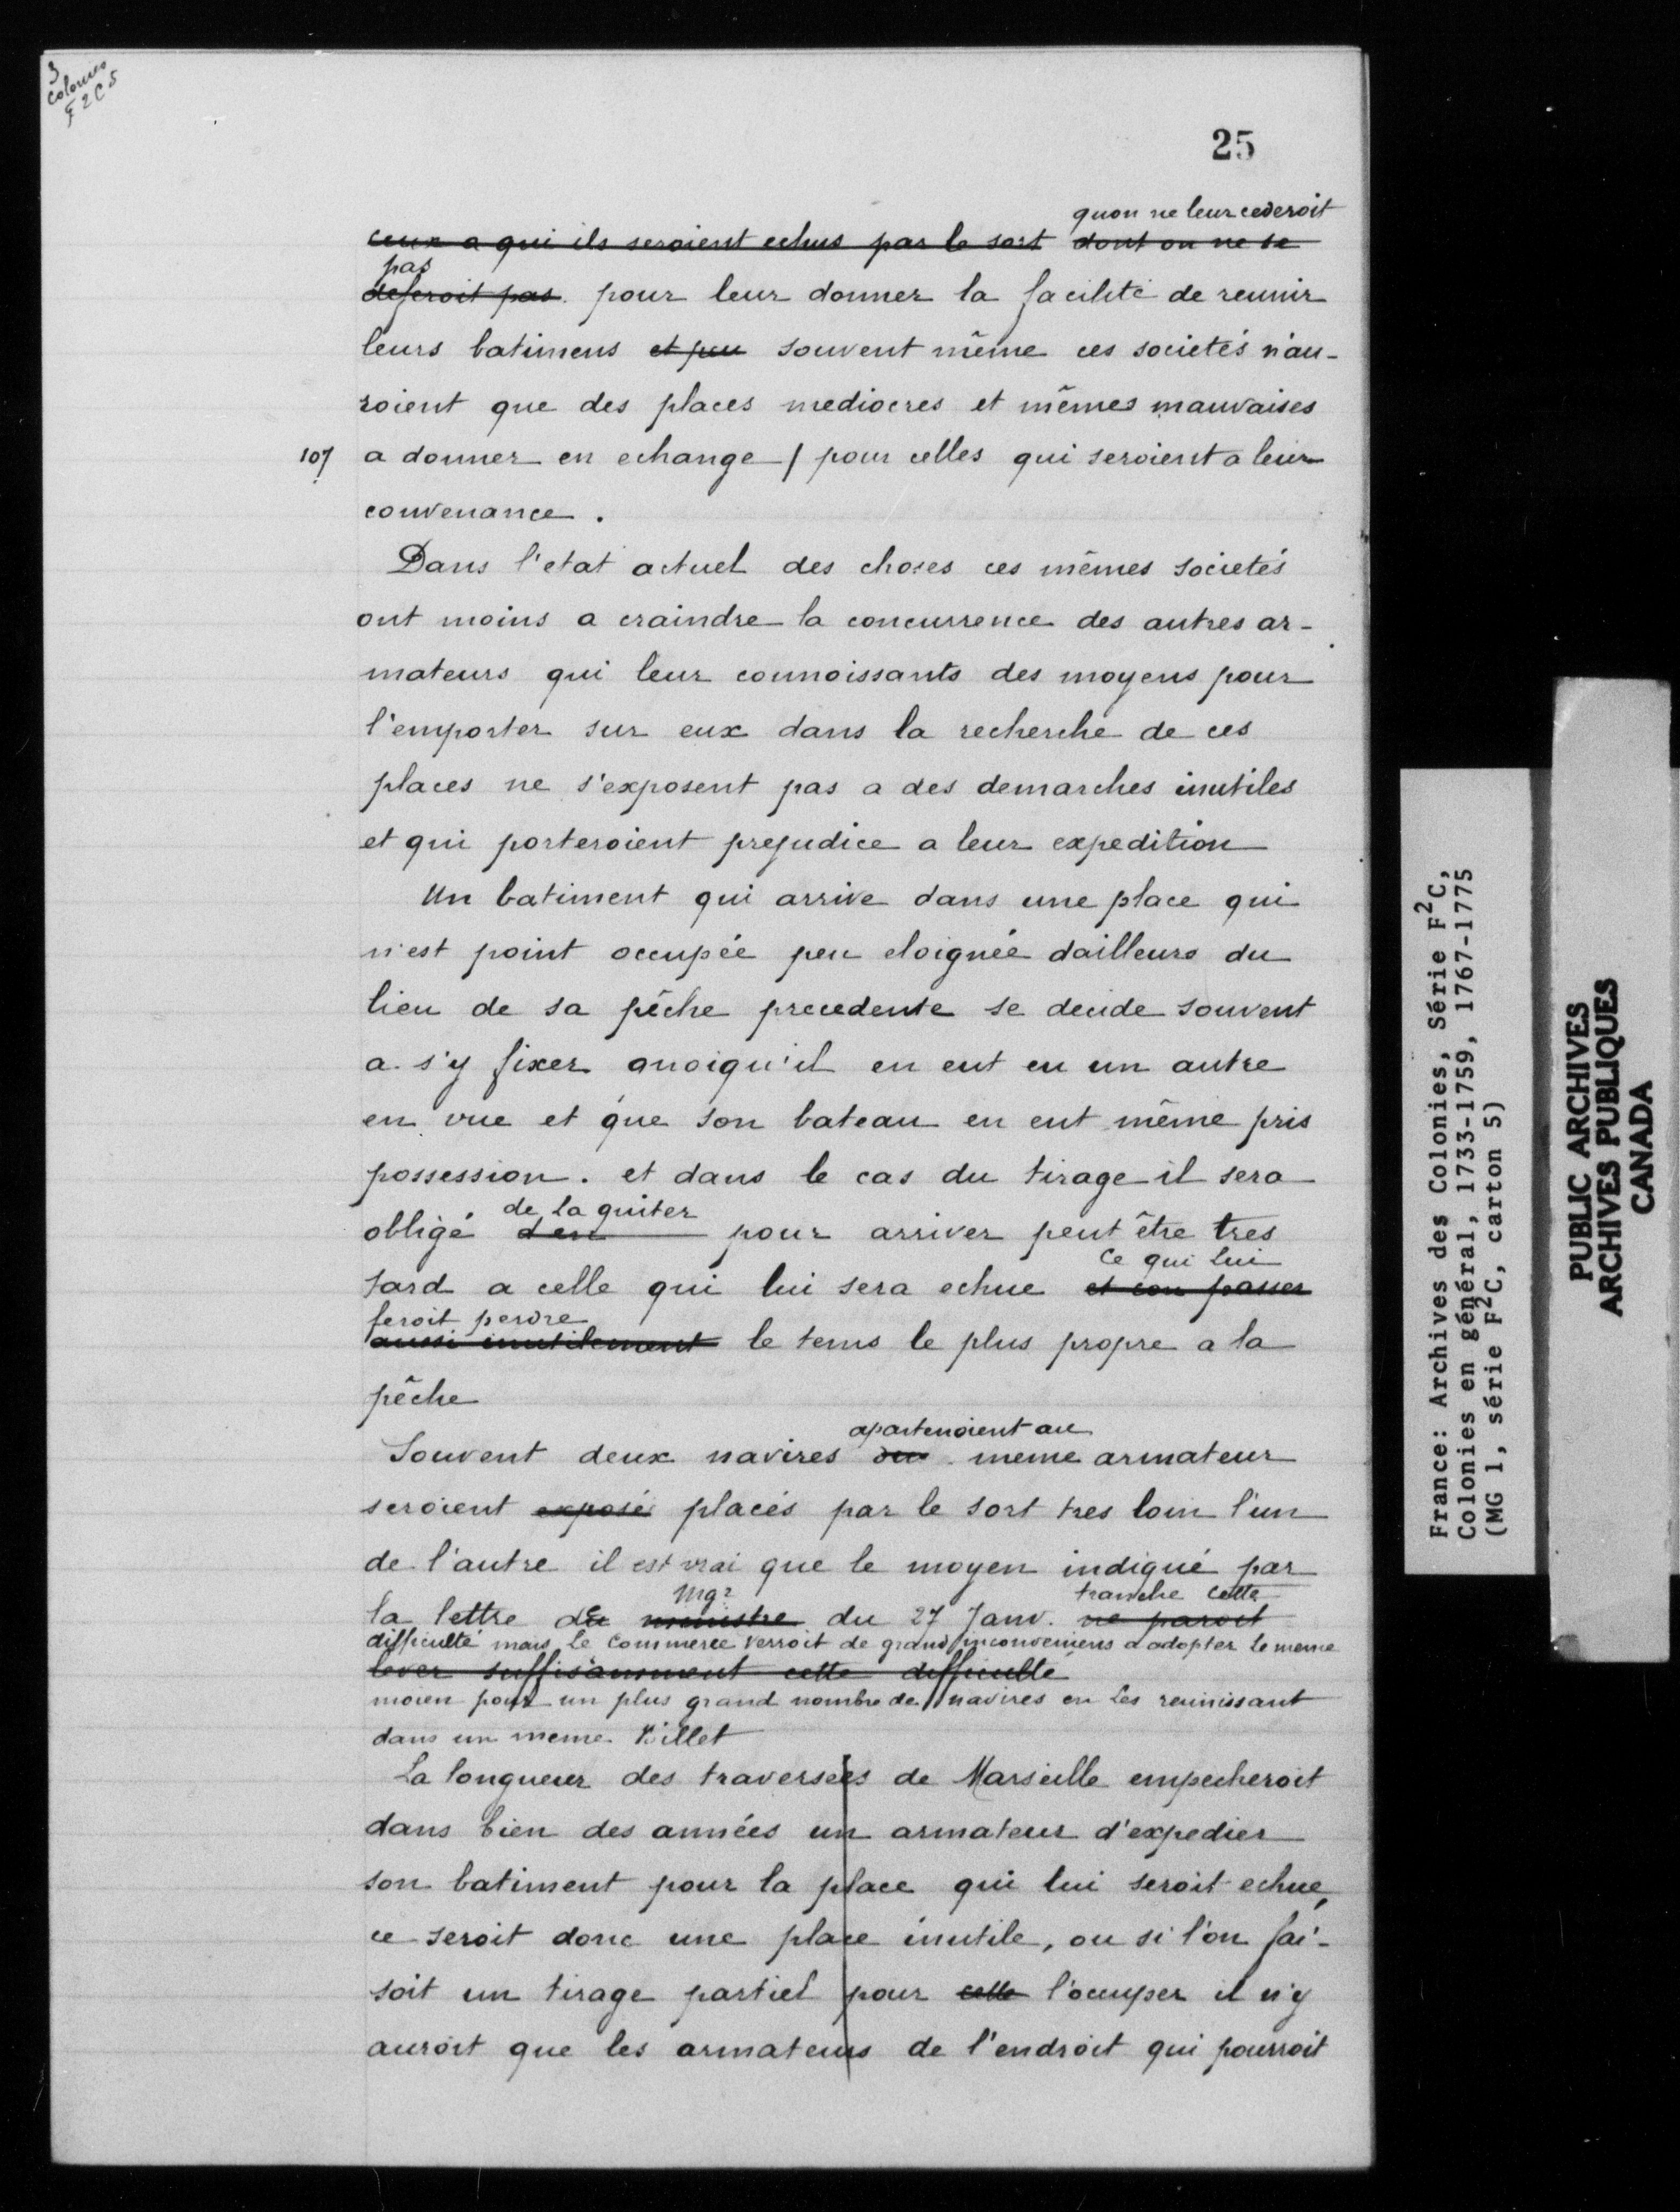 3
colonies
F 2 C 5
25
quon ne leur cederoit
ceux a qui ils seroient echus par le sort dont on ne se
pas
deferoit pas. pour leur donner la facilité de reunir
leurs batimens et peu souvent même ces societés n'au-
roient que des places mediocres et mêmes mauvaises
107 a donner en echange / pour celles qui seroient a leur
convenance.
Dans l'etat actuel des choses ces mêmes societés
ont moins a craindre la concurrence des autres ar-
mateurs qui leur connoissants des moyens pour
l'emporter sur eux dans la recherche de ces
places ne s'exposent pas a des demarches inutiles
et qui porteroient prejudice a leur expedition
Un batiment qui arrive dans une place qui
n'est point occupée peu eloignée dailleurs du
lieu de sa pêche precedente se decide souvent
a s'y fixer quoiqu'il en eut eu un autre
en vue et que son bateau en eut même pris
possession. et dans le cas du tirage il sera
de la quiter
obligé d'en pour arriver peut être tres
Ce qui lui
tard a celle qui lui sera echue et con passer
feroit perdre
aussi inutilement le tems le plus propre a la
pêche
apartenoient au
Souvent deux navires du meme armateur
seroient exposé placés par le sort tres loin l'un
de l'autre il est vrai que le moyen indiqué par
Mgr tranche cette
la lettre de ministre du 27 Janv. ne paroit
difficulté mais le Commerce verroit de grand inconveniens a adopter le meme
lever suffisamment cette difficulté
moien pour un plus grand nombre de navires en les reunissant
dans un meme Billet
La longueur des traversées de Marseille empecheroit
dans bien des années un armateur d'expedier
son batiment pour la place qui lui seroit echue,
ce seroit donc une place inutile, ou si l'on fai-
soit un tirage partiel pour cette l'occuper il n'y
auroit que les armateurs de l'endroit qui pourroit
France: Archives des Colonies, Série F²C,
Colonies en général, 1733-1759, 1767-1775
(MG 1, série F²C, carton 5)
PUBLIC ARCHIVES
ARCHIVES PUBLIQUES
CANADA